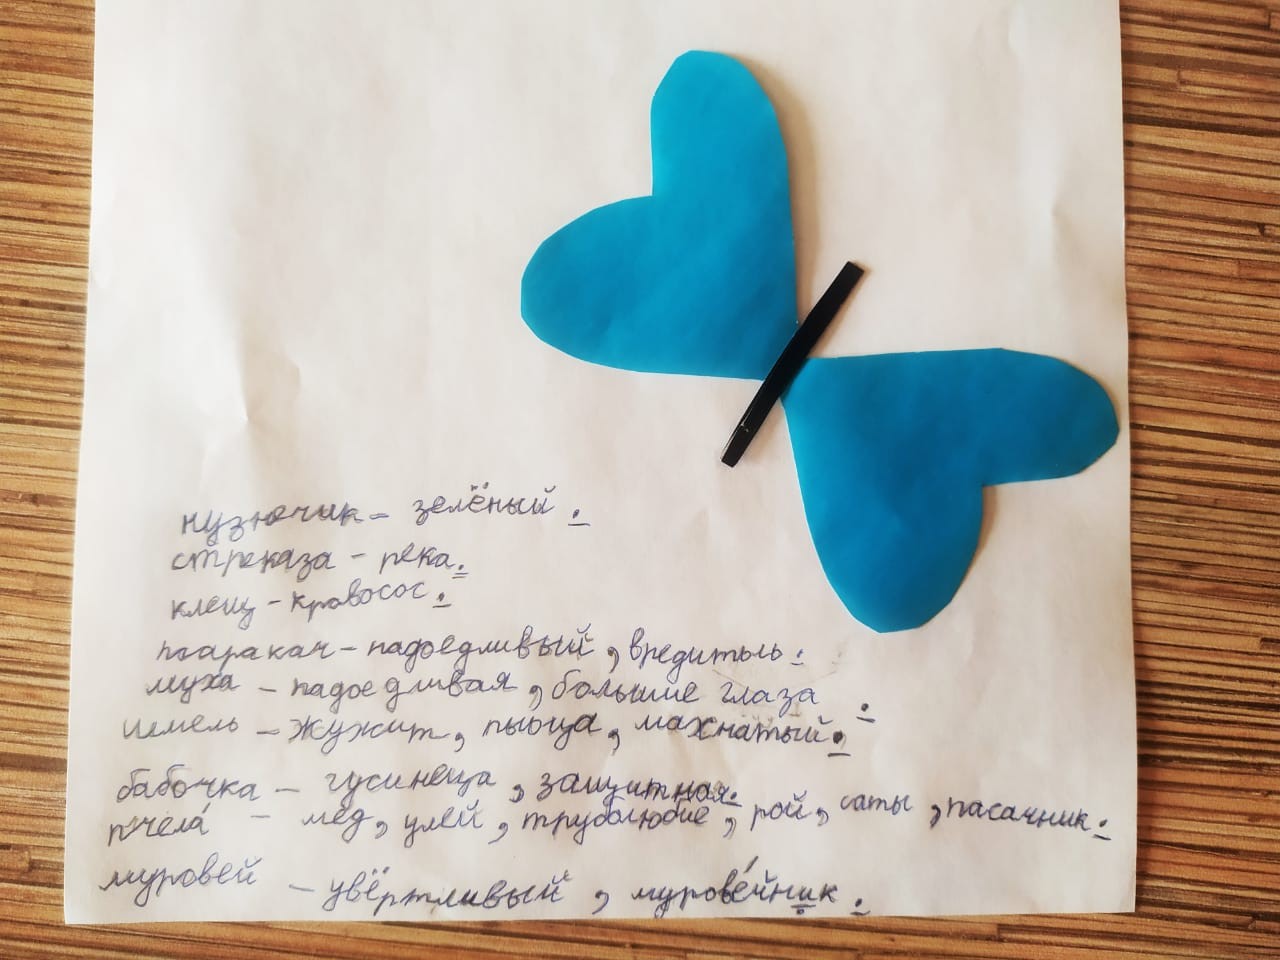 кузнечик - зелёный.
стреказа - река.
клещ - кровосос.
таракан - надоедливый, вредитель.
муха - надоедливая, большие глаза.
шмель - жужжит, пыльца, махнатый.
бабочка - гусинеца, защитная.
пчела́ - мёд, улей, трудолюбие, рой, саты, пасачник.
муровей - увёртливый, муровéйник.